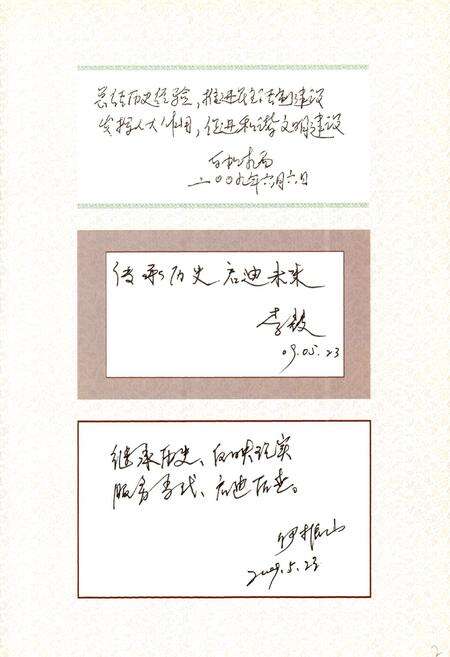 总结历史经验，推进民主法制建设
发挥人大作用，促进和谐文明建设
二〇〇九年六月六日
传承历史 启迪未来
李毅
09.05.23
继承历史、反映现实
服务当代、启迪后世。
2009.5.23
2